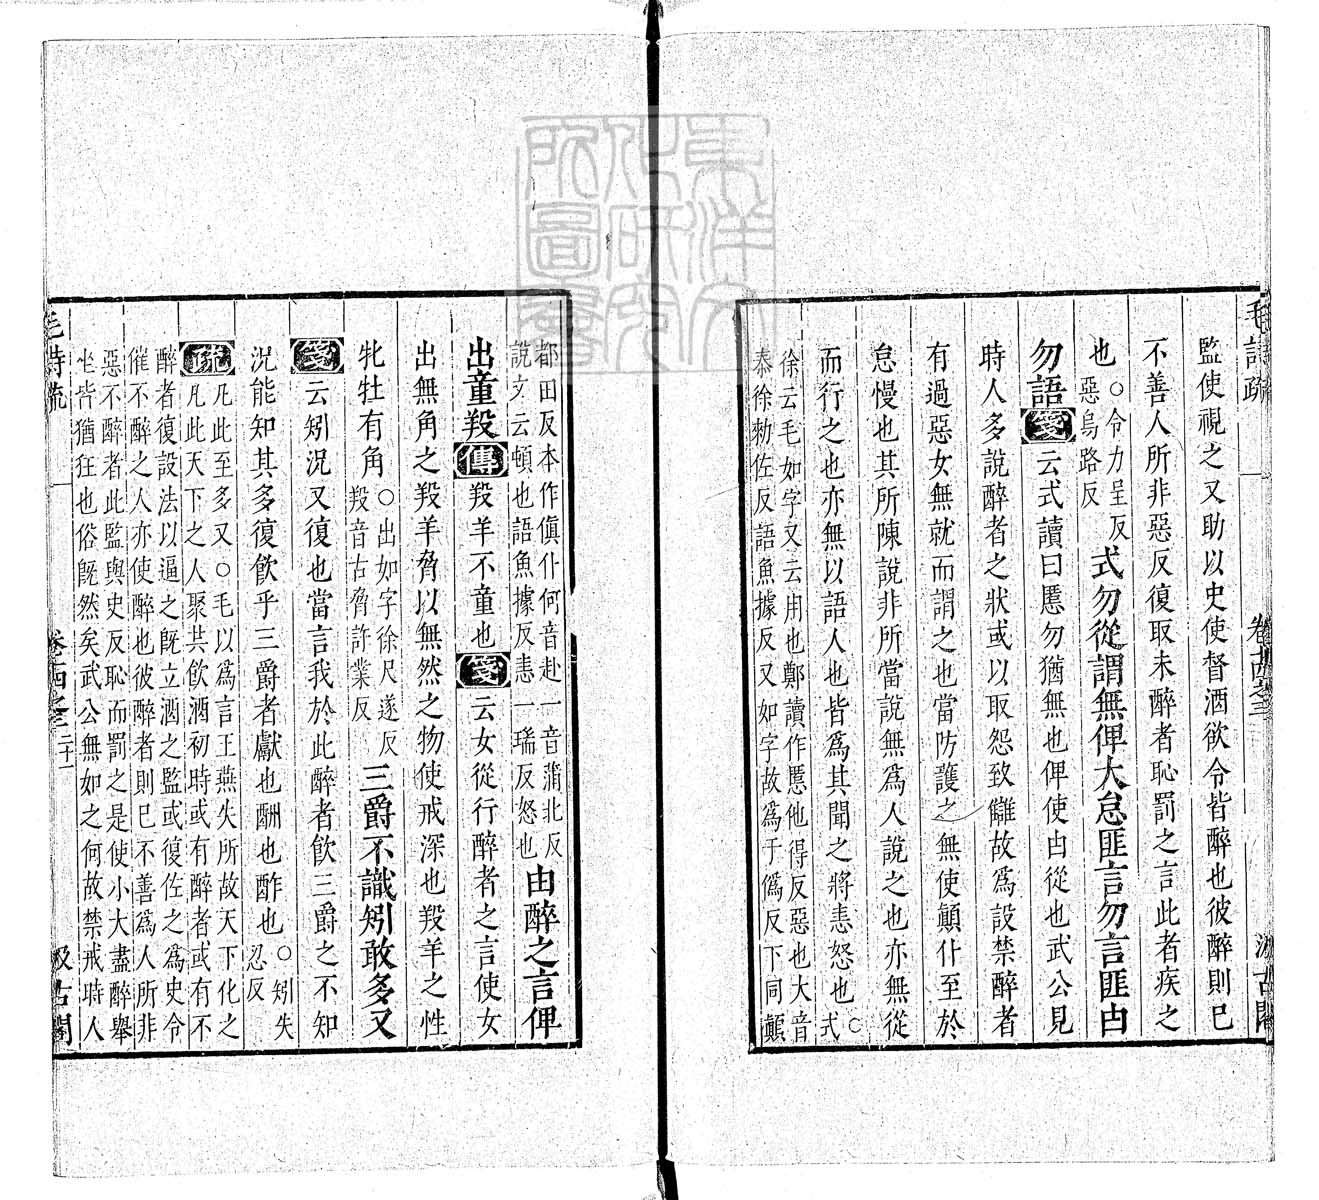 毛詩疏 卷十四之三 汲古閣
監使視之又助以史使督酒欲令皆醉也彼醉則已
不善人所非惡反復取未醉者恥罰之言此者疾之
也
○令力呈反
惡烏路反
式勿從謂無俾大怠匪言勿言匪由
勿語箋云式讀曰慝勿猶無也俾使由從也武公見
時人多說醉者之狀或以取怨致讎故為設禁醉者
有過惡女無就而謂之也當防護之無使顛仆至於
怠慢也其所陳說非所當說無為人說之也亦無從
而行之也亦無以語人也皆為其聞之將恚怒也○式
徐云毛如字又云用也鄭讀作慝他得反惡也大音
泰徐勑佐反語魚據反又如字故為于僞反下同顛
都田反本作傎仆何音赴一音蒲北反
說文云頓也語魚據反恚一瑞反怒也
由醉之言俾
出童羖傳羖羊不童也箋云女從行醉者之言使女
出無角之羖羊脅以無然之物使戒深也羖羊之性
牝牡有角
○出如字徐尺遂反
羖音古脅許業反
三爵不識矧敢多又
箋云矧況又復也當言我於此醉者飲三爵之不知
況能知其多復飲乎三爵者獻也酬也酢也
○矧失
忍反
疏凡此至多又○毛以為言王燕失所故天下化之
凡此天下之人聚共飲酒初時或有醉者或有不
醉者復設法以逼之既立酒之監或復佐之為史令
催不醉之人亦使醉也彼醉者則已不善為人所非
惡不醉者此監與史反恥而罰之是使小大盡醉舉
坐皆猶狂也俗既然矣武公無如之何故禁戒時人
毛詩疏 卷十四之三 二十一 汲古閣
東洋文化研究所圖書